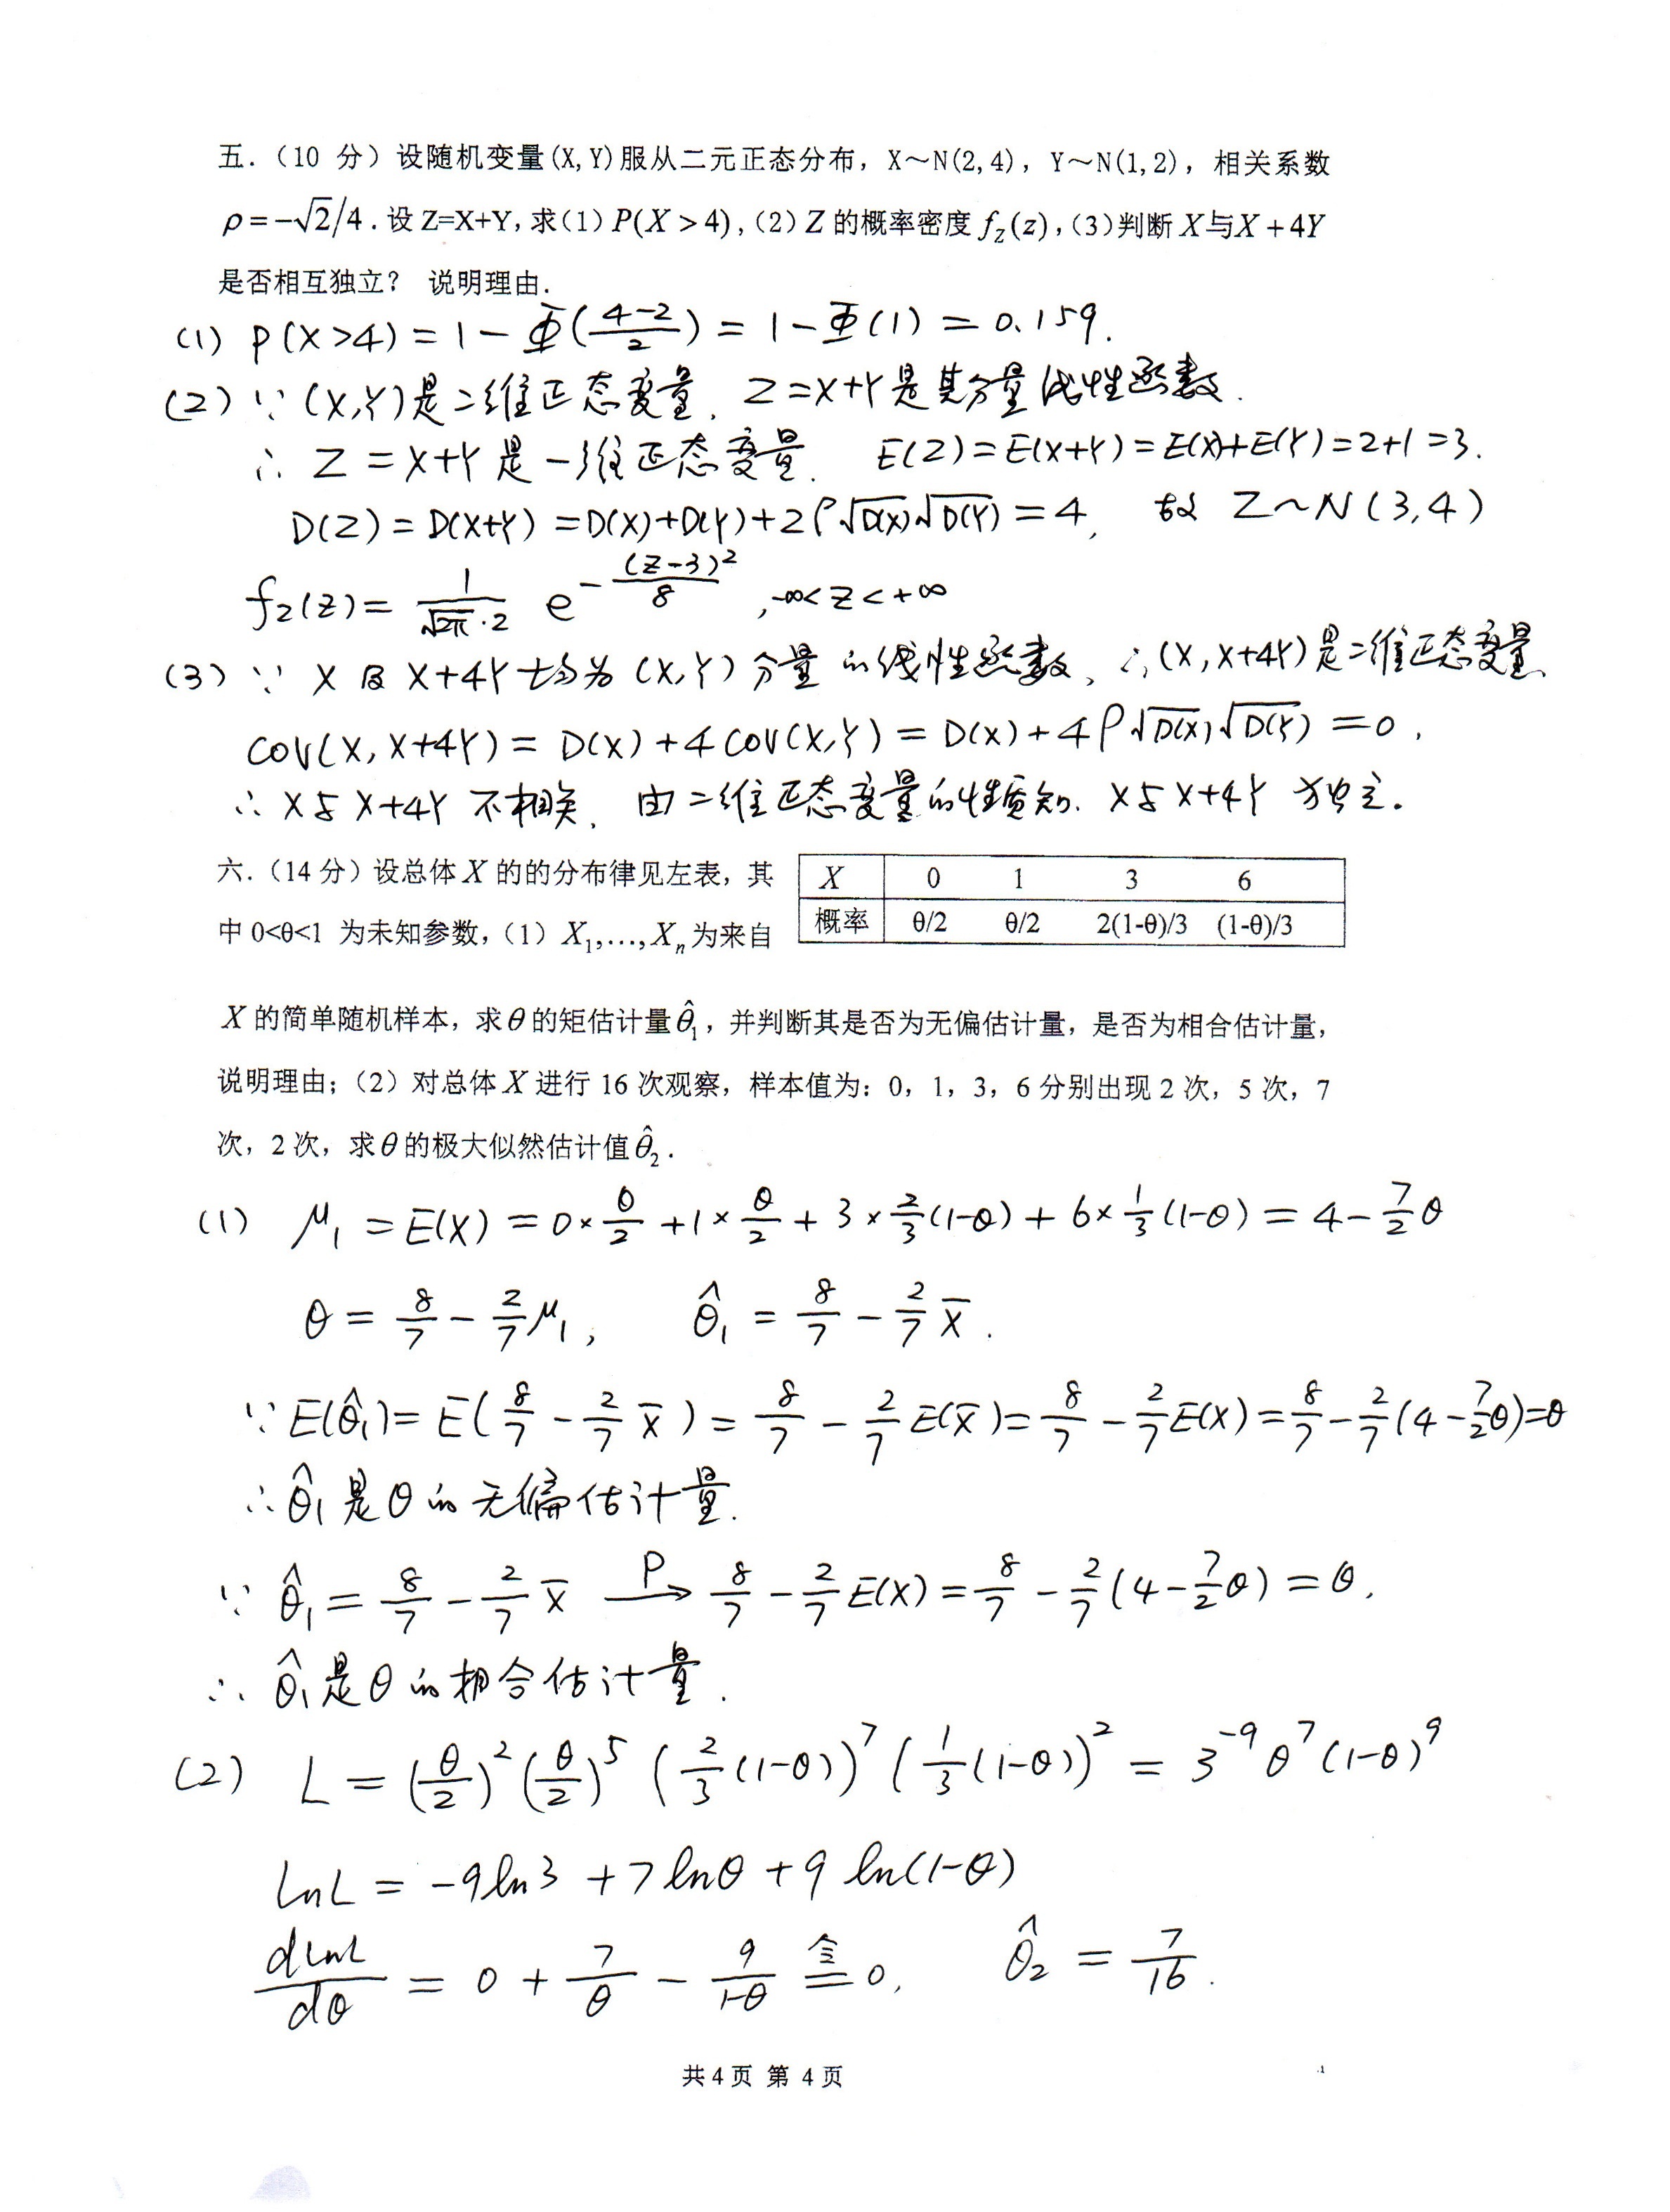 五.（10 分）设随机变量(X,Y)服从二元正态分布，X～N(2,4)，Y～N(1,2)，相关系数
ρ=-√2/4.设 Z=X+Y,求(1) P(X>4),(2) Z 的概率密度 f_Z(z),(3)判断 X与X+4Y
是否相互独立？ 说明理由.
(1) P(X>4) = 1 - Φ((4-2)/2) = 1 - Φ(1) = 0.159.
(2) ∵ (X,Y)是二维正态变量, Z=X+Y是其分量线性函数.
∴ Z=X+Y是一维正态变量. E(Z)=E(X+Y)=E(X)+E(Y)=2+1=3.
D(Z)=D(X+Y)=D(X)+D(Y)+2ρ√D(X)√D(Y)=4, 故 Z~N(3,4)
f_Z(z) = 1/(√2π·2) e^(-(z-3)²/8) , -∞<z<+∞
(3) ∵ X 及 X+4Y均为(X,Y)分量的线性函数, ∴(X,X+4Y)是二维正态变量.
COV(X,X+4Y)= D(X)+4COV(X,Y)= D(X)+4ρ√D(X)√D(Y) =0,
∴ X与X+4Y 不相关, 由二维正态变量的性质知, X与X+4Y 独立.
六.（14 分）设总体 X 的的分布律见左表，其
中 0<θ<1 为未知参数,（1）X₁,…,Xₙ为来自
X 0 1 3 6
概率 θ/2 θ/2 2(1-θ)/3 (1-θ)/3
X 的简单随机样本，求θ的矩估计量θ̂₁，并判断其是否为无偏估计量，是否为相合估计量，
说明理由;（2）对总体 X 进行 16 次观察，样本值为：0，1，3，6 分别出现 2 次，5 次，7
次，2 次，求θ的极大似然估计值θ̂₂.
(1) μ₁ = E(X) = 0×θ/2 + 1×θ/2 + 3×2/3(1-θ) + 6×1/3(1-θ) = 4 - 7/2θ
θ = 8/7 - 2/7μ₁, θ̂₁ = 8/7 - 2/7X̄.
∵ E(θ̂₁) = E(8/7 - 2/7X̄) = 8/7 - 2/7E(X̄) = 8/7 - 2/7E(X) = 8/7 - 2/7(4 - 7/2θ) = θ
∴ θ̂₁是θ的无偏估计量.
∵ θ̂₁ = 8/7 - 2/7X̄ —P→ 8/7 - 2/7E(X) = 8/7 - 2/7(4 - 7/2θ) = θ,
∴ θ̂₁是θ的相合估计量.
(2) L = (θ/2)²(θ/2)⁵(2/3(1-θ))⁷(1/3(1-θ))² = 3⁻⁹θ⁷(1-θ)⁹
lnL = -9ln3 + 7lnθ + 9ln(1-θ)
dlnL/dθ = 0 + 7/θ - 9/(1-θ) 令= 0, θ̂₂ = 7/16.
共4页 第 4页